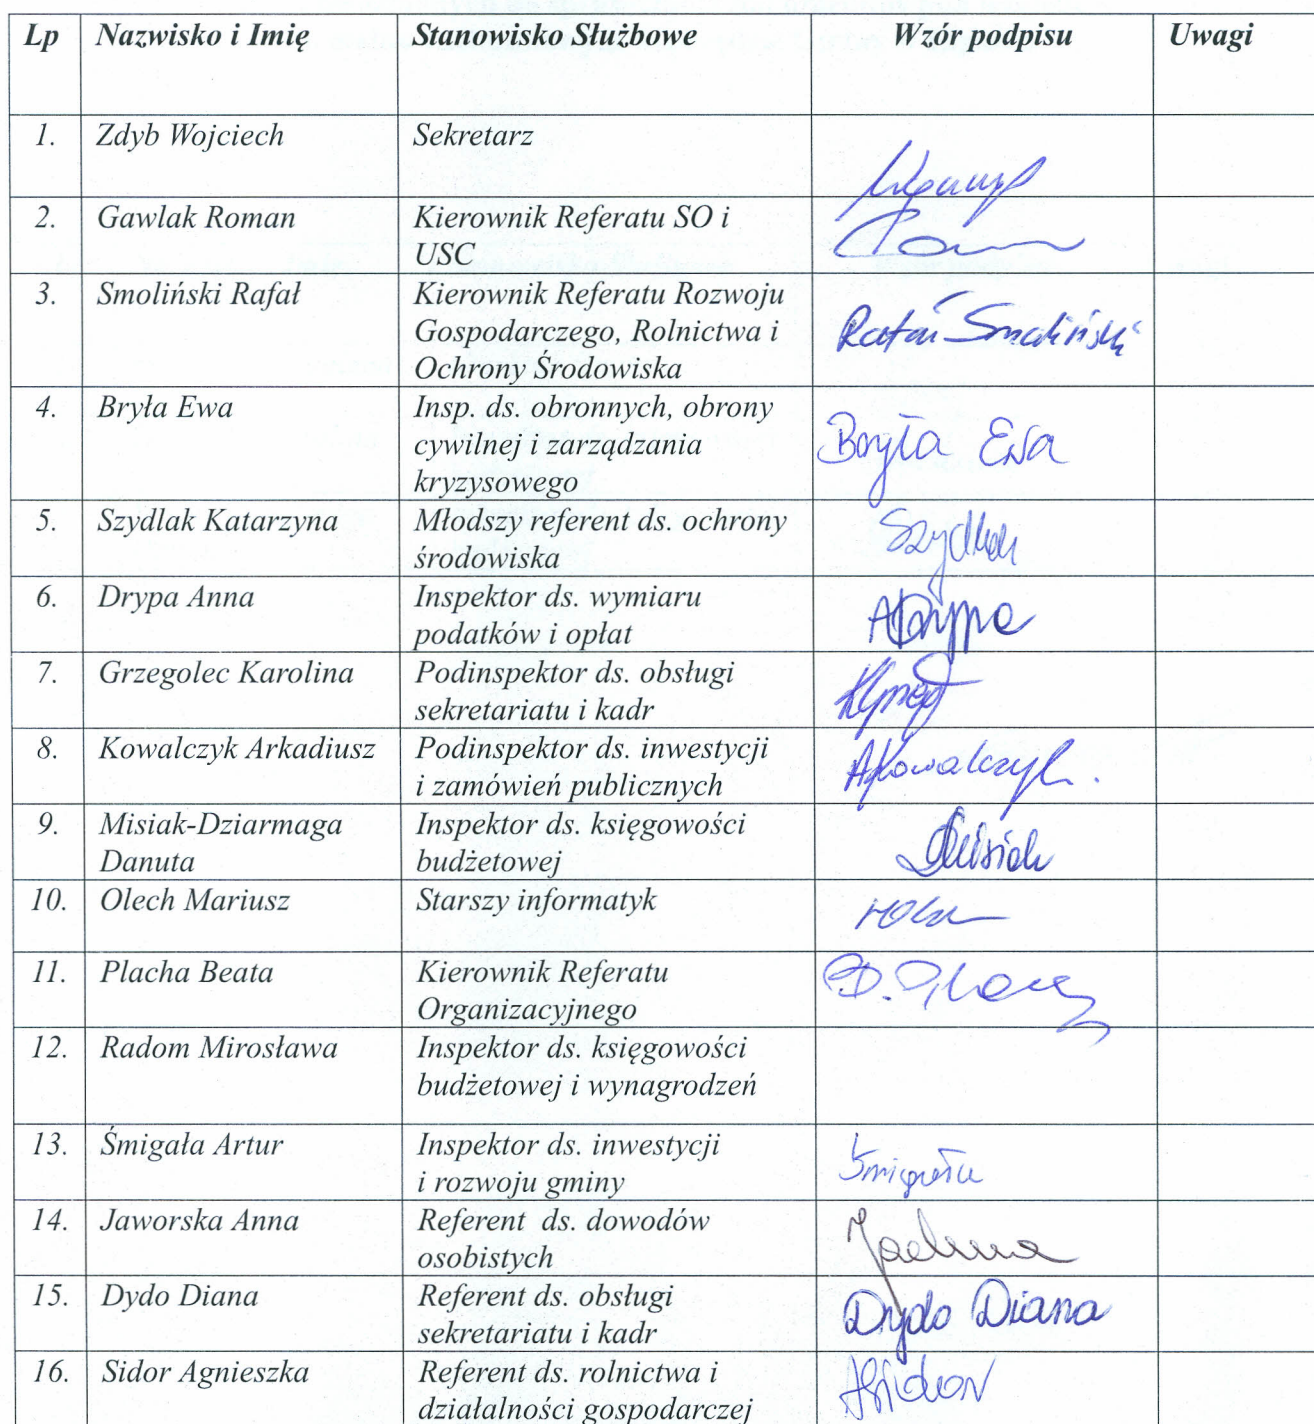 Lp Nazwisko i Imię Stanowisko Służbowe Wzór podpisu Uwagi
1. Zdyb Wojciech Sekretarz
2. Gawlak Roman Kierownik Referatu SO i
USC
3. Smoliński Rafał Kierownik Referatu Rozwoju
Gospodarczego, Rolnictwa i Rafał Smoliński
Ochrony Środowiska
4. Bryła Ewa Insp. ds. obronnych, obrony
cywilnej i zarządzania Bryła Ewa
kryzysowego
5. Szydlak Katarzyna Młodszy referent ds. ochrony Szydlak
środowiska
6. Drypa Anna Inspektor ds. wymiaru ADrypa
podatków i opłat
7. Grzegolec Karolina Podinspektor ds. obsługi
sekretariatu i kadr
8. Kowalczyk Arkadiusz Podinspektor ds. inwestycji AKowalczyk.
i zamówień publicznych
9. Misiak-Dziarmaga Inspektor ds. księgowości
Danuta budżetowej DMisiak
10. Olech Mariusz Starszy informatyk
11. Placha Beata Kierownik Referatu
Organizacyjnego
12. Radom Mirosława Inspektor ds. księgowości
budżetowej i wynagrodzeń
13. Śmigała Artur Inspektor ds. inwestycji Śmigała
i rozwoju gminy
14. Jaworska Anna Referent ds. dowodów
osobistych
15. Dydo Diana Referent ds. obsługi Dydo Diana
sekretariatu i kadr
16. Sidor Agnieszka Referent ds. rolnictwa i ASidor
działalności gospodarczej